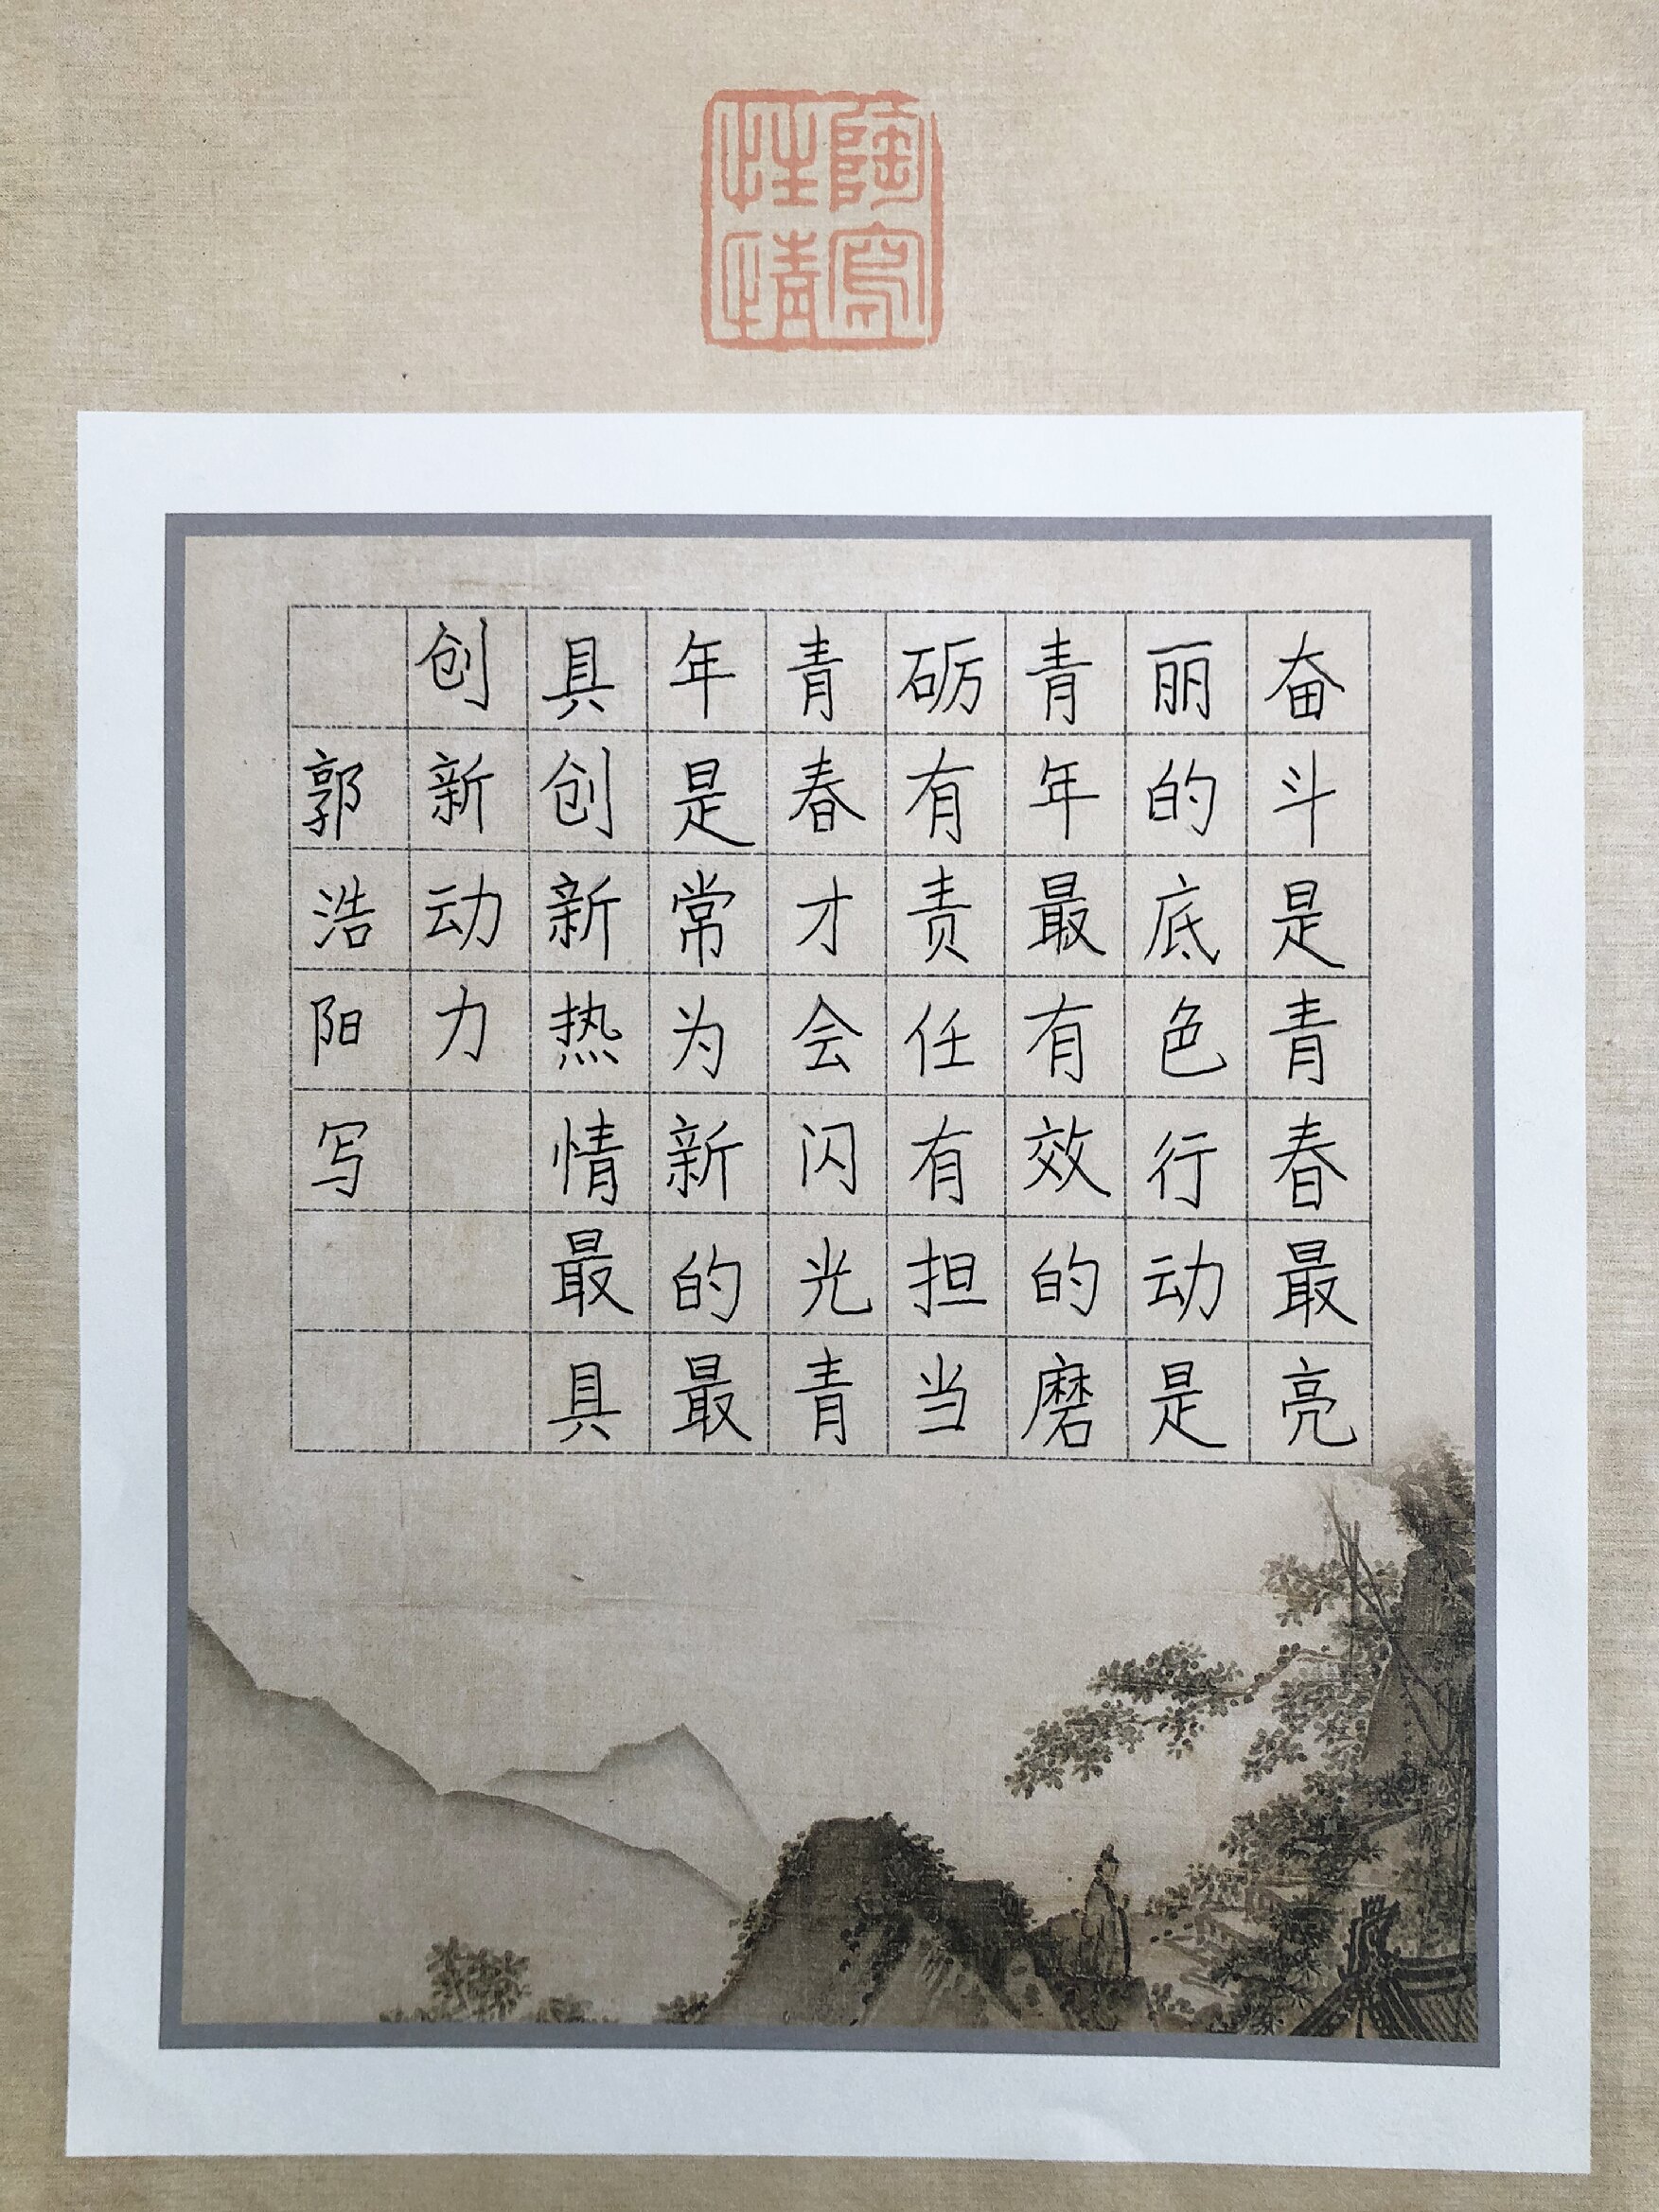 陶写性情
奋斗是青春最亮
丽的底色行动是
青年最有效的磨
砺有责任有担当
青春才会闪光青
年是常为新的最
具创新热情最具
创新动力
郭浩阳写